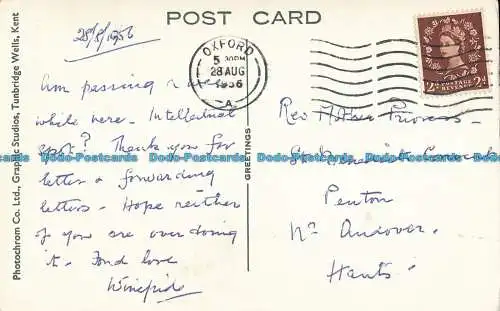 POST CARD
28/8/1956
OXFORD
5 30PM
28 AUG
1956
A
POSTAGE
REVENUE
2D 2D
Photochrom Co. Ltd., Graphic Studios, Tunbridge Wells, Kent
GREETINGS
Am passing a
while here. Intellectual
spot? Thank you for
letter & forwarding
letters. Hope neither
of you are over doing
it. Fond love
Winefride
Rev Mother Prioress
Penton
Nr. Andover.
Hants.
Dodo-Postcards Dodo-Postcards Dodo-Postcards Dodo-Postcards